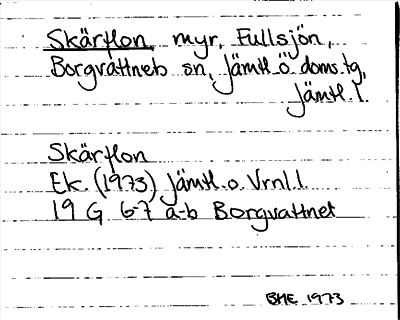 Skärflon, myr, Fullsjön,
Borgvattnets sn, Jämtl. Ö. doms.tg,
Jämtl. l.
Skärflon
Ek. (1973) Jämtl. o. Vrnl. l.
19 G 6-7 a-b Borgvattnet
BME 1973